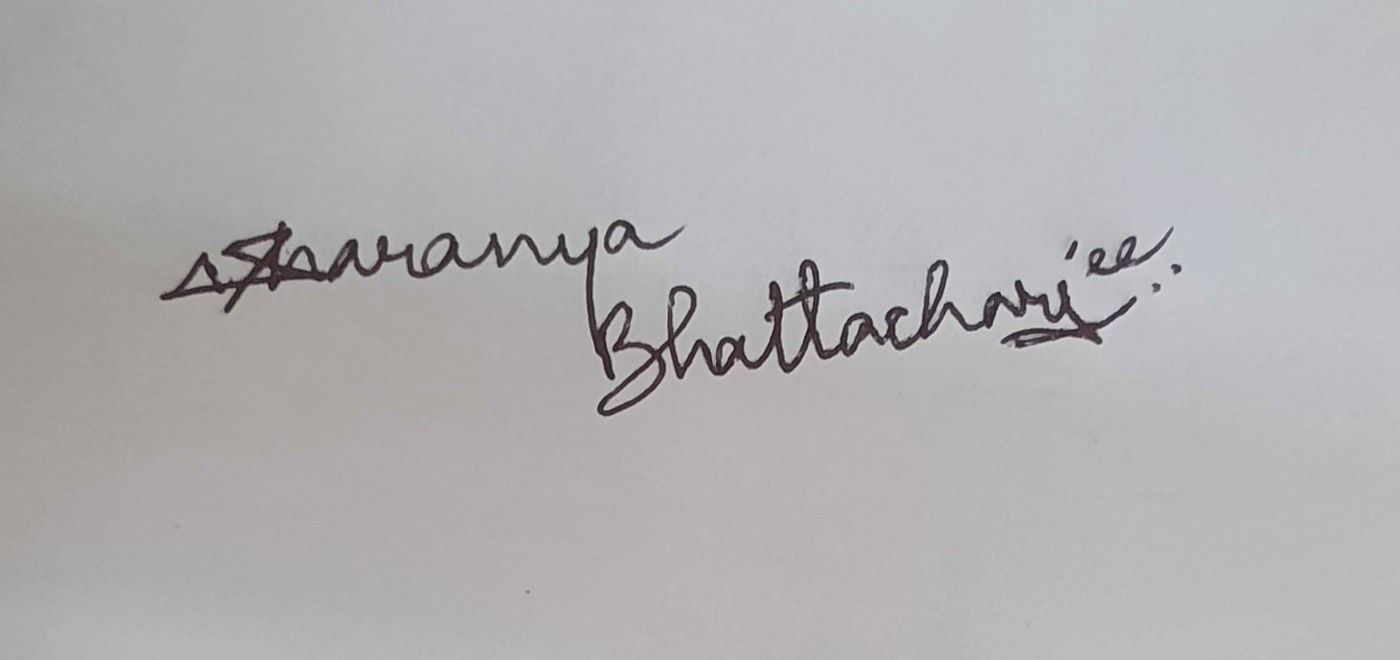 Sharanya
Bhattacharjee